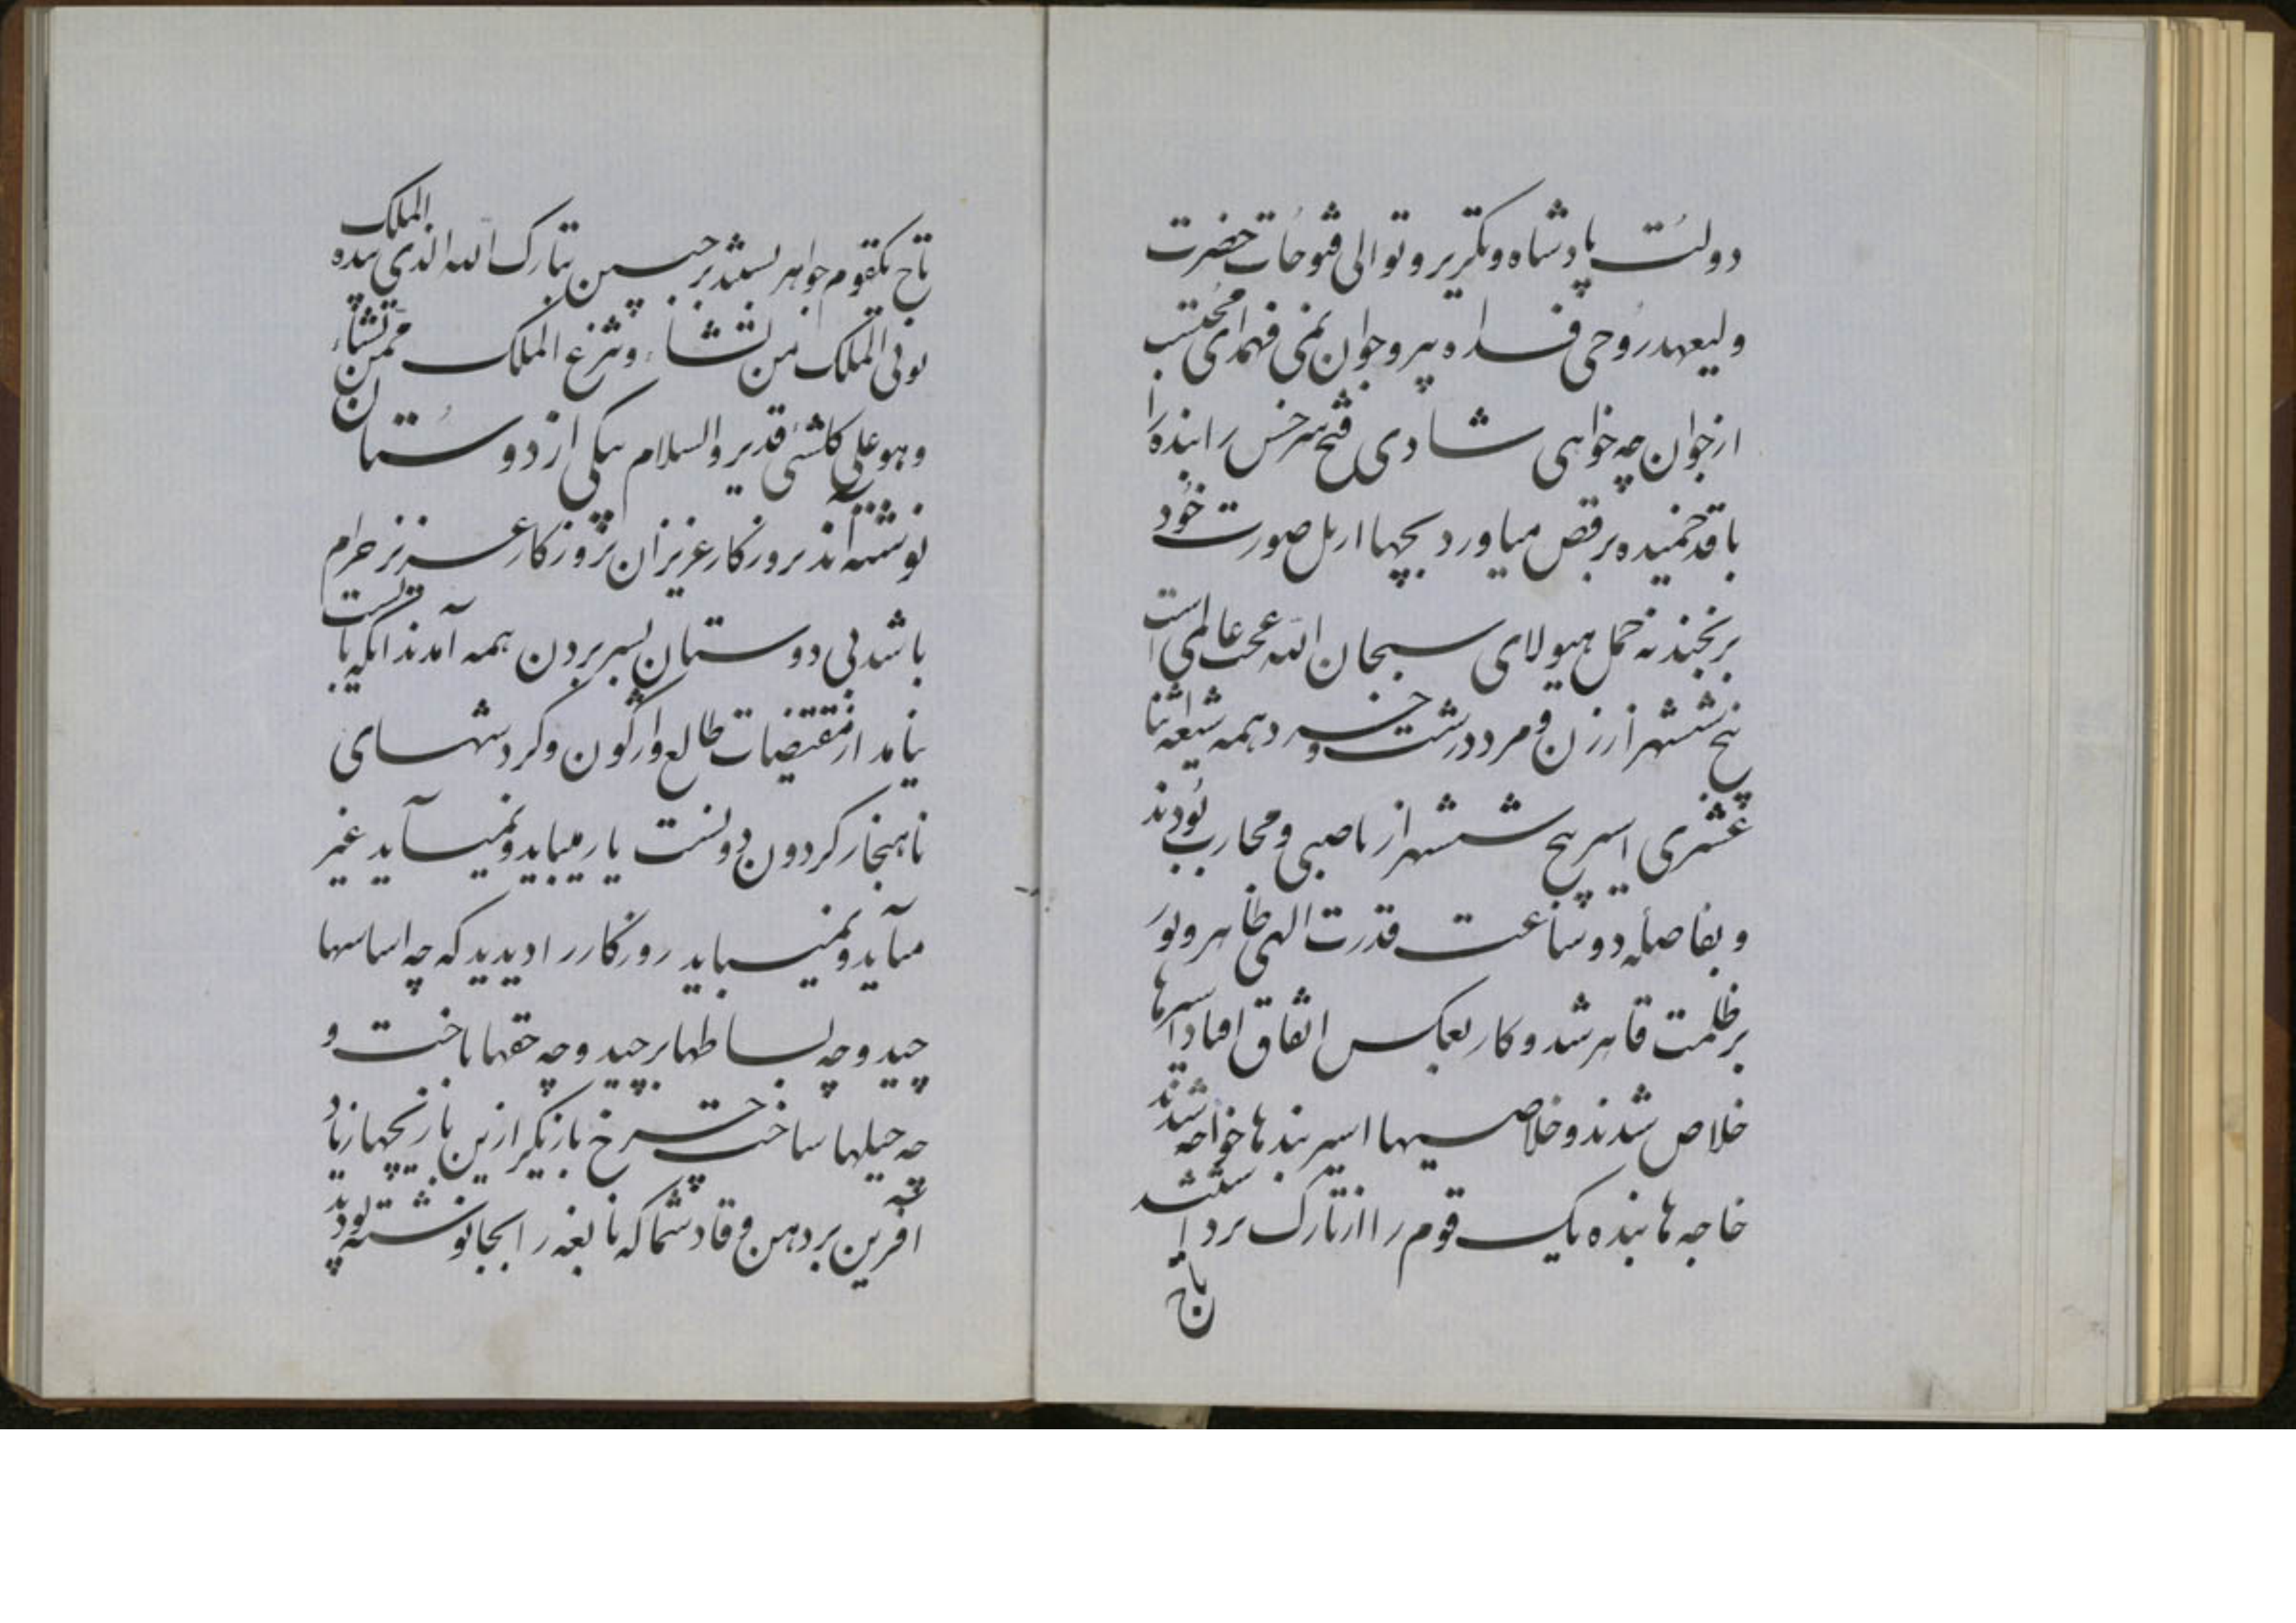 دولت پادشاه و تکریر و توالی فتوحات حضرت
ولیعهد روحی فداه پیر و جوان نمی فهمد ای محتسب
از جوان چه خواهی شادی فتح سرخس را بنده را
با قد خمیده برقص میاورد بچها از بل صورت خود
برنجند نه حمل هیولای سبحان الله عجب عالمی است
پنج ششهر از زن و مرد و درشت و خرد همه شیعه اثنا
عشری اسیر پنج ششهر از ناصبی و محارب بودند
و بفاصله دو ساعت قدرت الهی ظاهر و نور
بر ظلمت قاهر شد و کار بعکس اتفاق افتاد اسیرها
خلاص شدند و خلاصیها اسیر بندها خواجه شدند
خاجه ها بنده یک قوم را از تارک بردا ستند
تاج
تاج یکقوم جواهر بستند بر جبین تبارک الله الذی بیده الملک
توتی الملک من تشاء و تنزع الملک ممن تشاء
و هو علی کلشئی قدیر والسلام یکی از دوستان
نوشته اند بروزگار عزیزان که روزگار عزیز حرام
باشد بی دوستان بسر بردن همه آمدند انکه بایست
نیامد از مقتضیات طالع واژگون و کردشهای
ناهنجار کردون دونست یار میباید و نمیآید غیر
میآید و نمیباید روزکار را دیدید که چه اساسها
چید و چه بساطها برچید و چه حقها باخت و
چه حیلها ساخت چرخ بازیکر ازین بازیچها زیاد
آفرین بر دهن وقاد شما که نابغه را بجا نوشته بودید